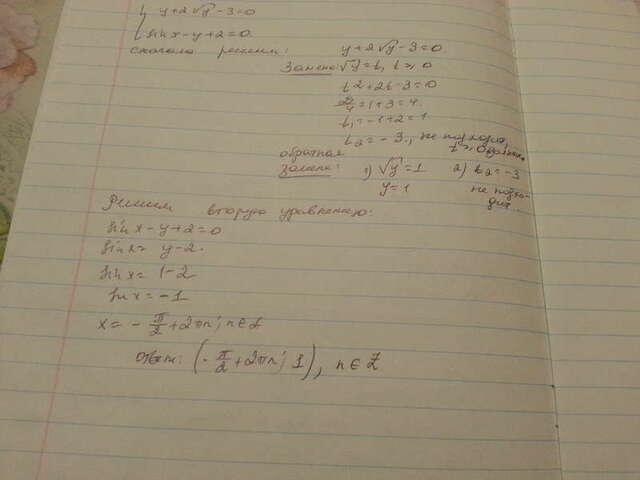 { y+2√y-3=0
sin x-y+2=0.
сначала решим: y+2√y-3=0
Замена: √y=t, t≥0
t²+2t-3=0
D/4=1+3=4.
t₁=-1+2=1
t₂=-3, не подходит,
t≥0
обратная
замена: 1) √y=1 2) t₂=-3
y=1 не подхо-
дит..
Решим второе уравнение:
sin x-y+2=0
sin x= y-2.
sin x= 1-2
sin x=-1
x= -π/2+2πn; n∈Z
Ответ: (-π/2+2πn; 1), n∈Z